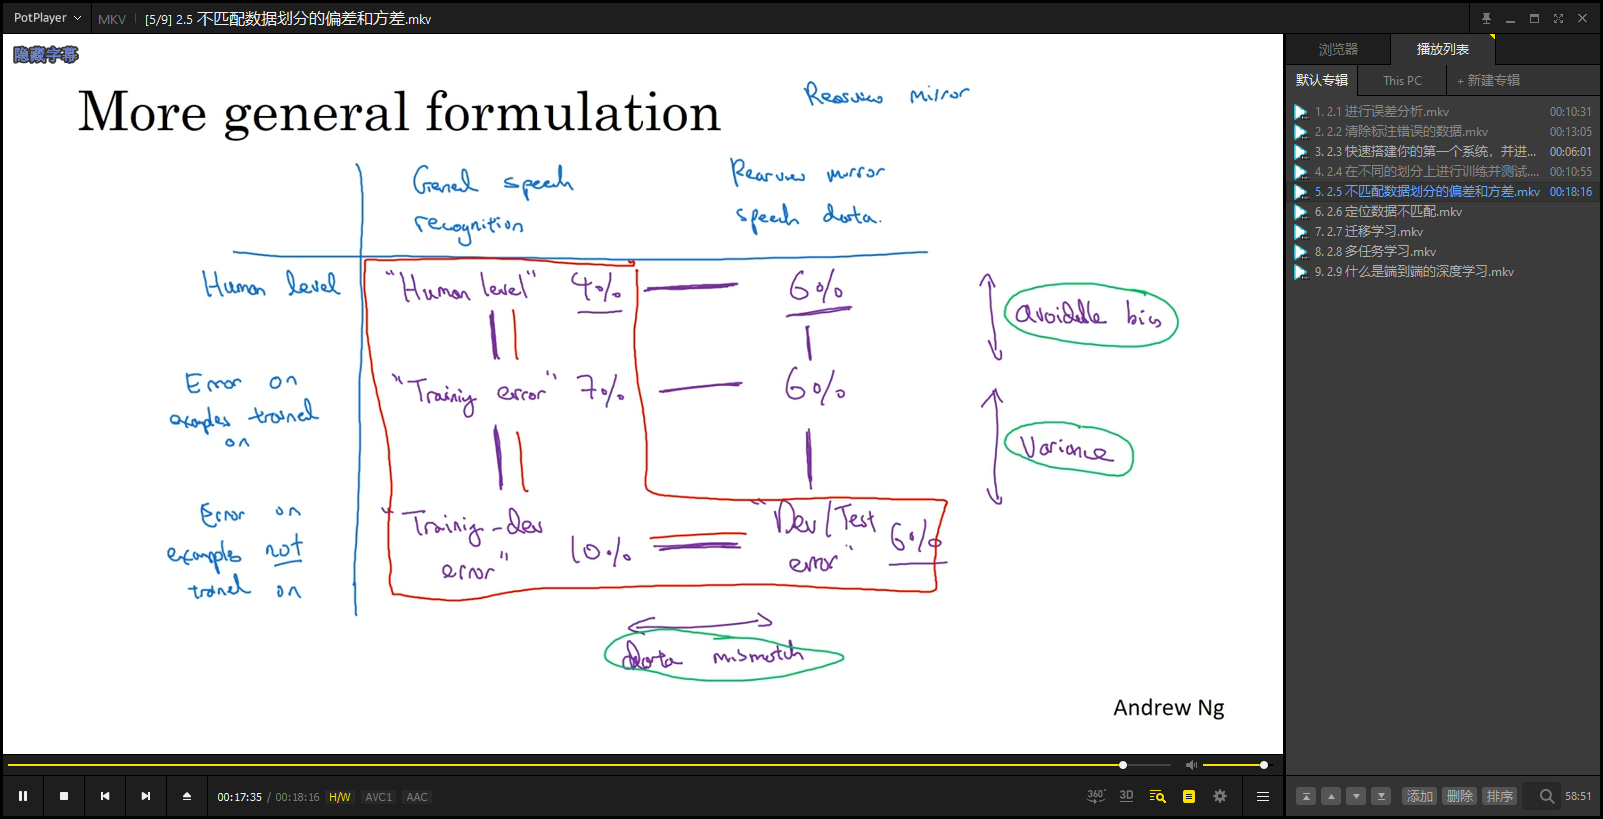 PotPlayer
MKV
[5/9] 2.5 不匹配数据划分的偏差和方差.mkv
隐藏字幕
More general formulation
Rearview mirror
General speech
recognition
Rearview mirror
speech data.
Human level
"Human level" 4%
6%
avoidable bias
Error on
examples trained
on
"Training error" 7%
6%
Variance
Error on
examples not
trained on
"Training-dev
error"
10%
"Dev/Test
error"
6%
data mismatch
Andrew Ng
00:17:35 / 00:18:16 H/W AVC1 AAC
360°
3D
浏览器
播放列表
默认专辑
This PC
+ 新建专辑
1. 2.1 进行误差分析.mkv 00:10:31
2. 2.2 清除标注错误的数据.mkv 00:13:05
3. 2.3 快速搭建你的第一个系统，并进... 00:06:01
4. 2.4 在不同的划分上进行训练并测试.... 00:10:55
5. 2.5 不匹配数据划分的偏差和方差.mkv 00:18:16
6. 2.6 定位数据不匹配.mkv
7. 2.7 迁移学习.mkv
8. 2.8 多任务学习.mkv
9. 2.9 什么是端到端的深度学习.mkv
添加 删除 排序
58:51